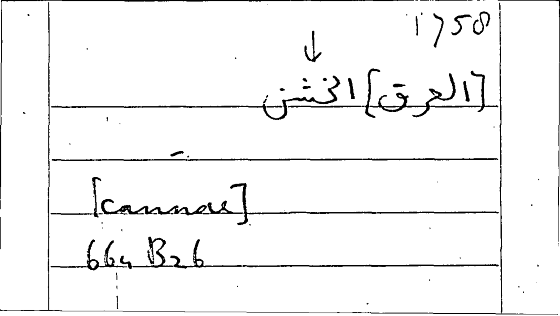 1758
[العرق] الخشن
[cannae]
664 B26